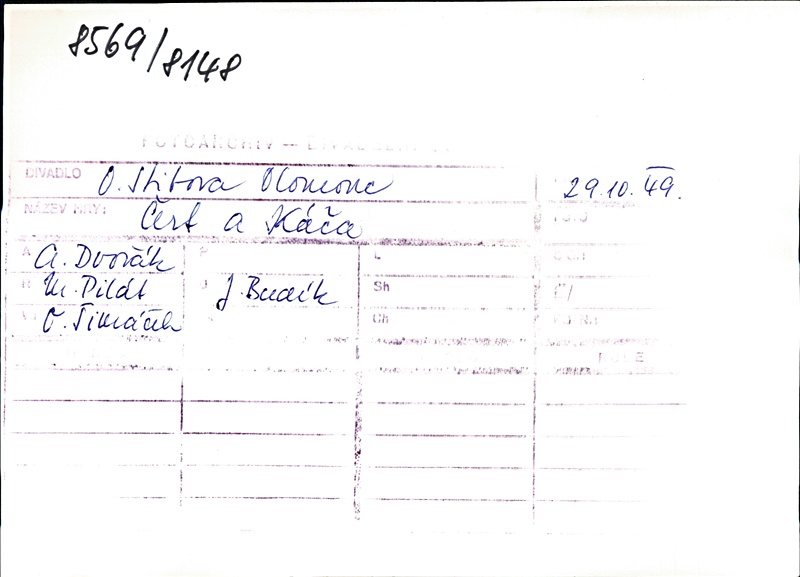 8569/8148
FOTOARCHIV — DIVADELNÍ
DIVADLO O. Stibora Olomouc 29.10.49.
NÁZEV HRY: Čert a Káča
A. Dvořák L
M. Pilát J. Budík Sh
O. Šimáček Ch
ROLE